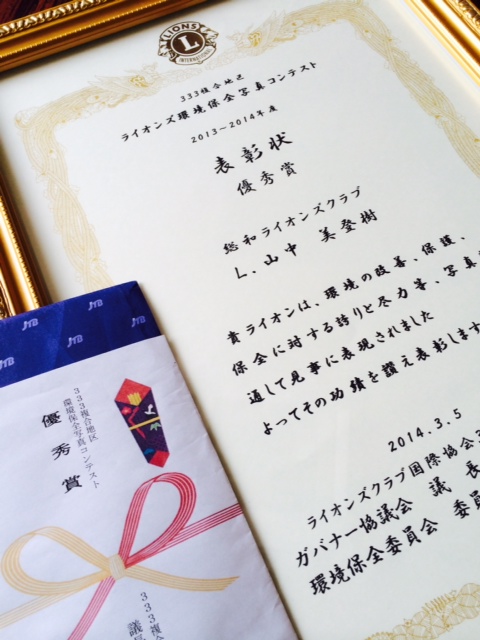 LIONS
L
INTERNATIONAL
333複合地区
ライオンズ環境保全写真コンテスト
2013〜2014年度
表彰状
優秀賞
総和ライオンズクラブ
L. 山中 美登樹
貴ライオンは、環境の改善、保護、
保全に対する誇りと尽力等、写真
通して見事に表現されました
よってその功績を讃え表彰します
2014.3.5
ライオンズクラブ国際協会3
ガバナー協議会 議長
環境保全委員会 委員
JTB
JTB
JTB
JTB
333複合地区
環境保全写真コンテスト
優秀賞
333複合
議長